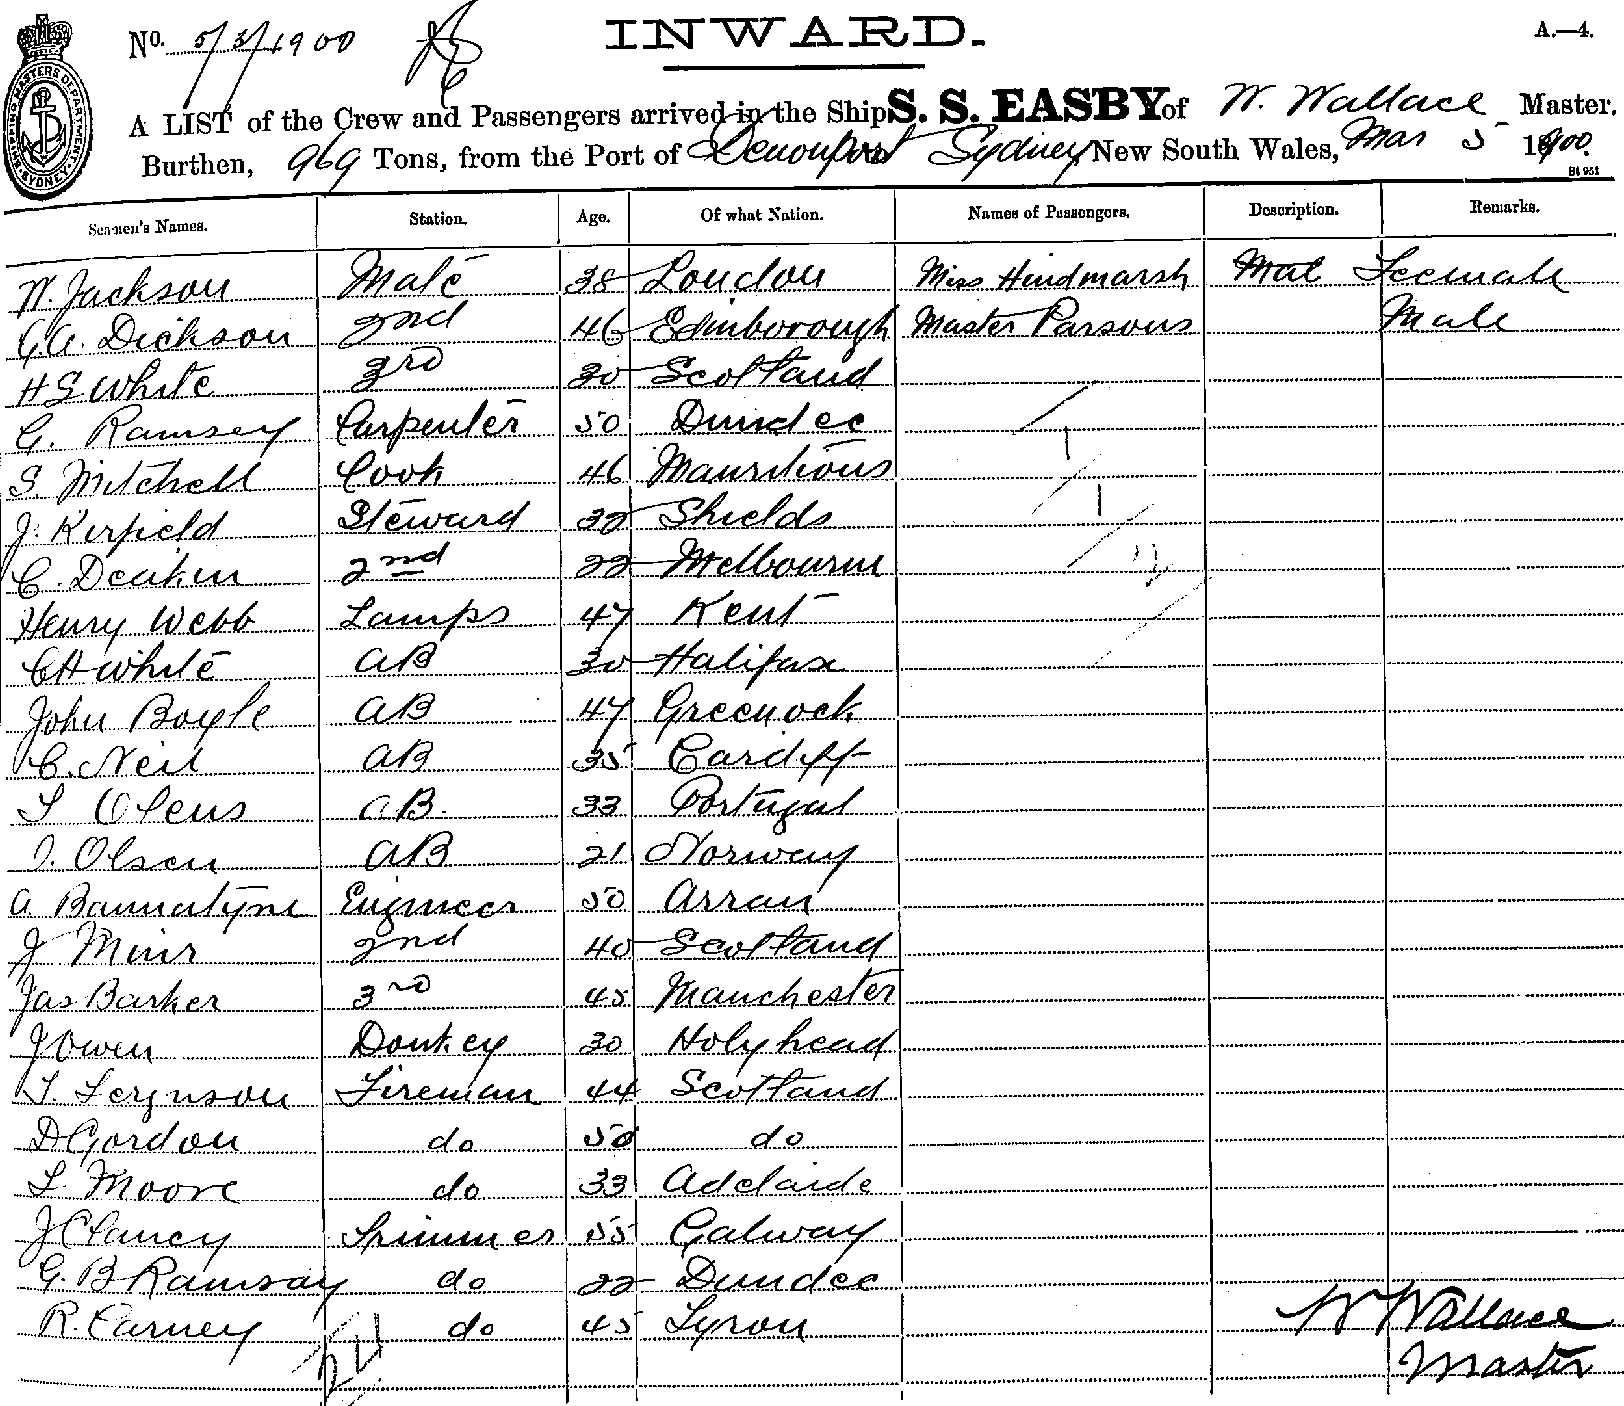 No. 5/3/1900
INWARD.
A.—4.
SHIPPING MASTERS DEPARTMENT SYDNEY
A LIST of the Crew and Passengers arrived in the Ship S. S. EASBY of W. Wallace Master.
Burthen, 969 Tons, from the Port of Devonport Sydney New South Wales, Mar 5 1900.
Seamen's Names. Station. Age. Of what Nation. Names of Passengers. Description. Remarks.
W. Jackson Mate 38 London Miss Hindmarsh Mal Feemale
G.A. Dickson 2nd 46 Edinborough Master Parsons Male
H S White 3rd 30 Scotland
G. Ramsey Carpenter 50 Dundee
S. Mitchell Cook 46 Mauritious
J. Kirfield Steward 32 Shields
C. Deakin 2nd 22 Melbourne
Henry Webb Lamps 47 Kent
C H White AB 30 Halifax
John Boyle AB 47 Greenock
C. Neil AB 35 Cardiff
AB. 33 Portugal
Olsen AB 21 Norway
A. Bannatyne Engineer 50 Arran
J Muir 2nd 40 Scotland
Jas Barker 3rd 45 Manchester
J Owen Donkey 30 Holyhead
T. Ferguson Fireman 44 Scotland
D Gordon do 50 do
L. Moore do 33 Adelaide
J Clancy Trimmer 55 Galway
G. B Ramsay do 22 Dundee
R. Carney do 45 Tyron
W Wallace
Master